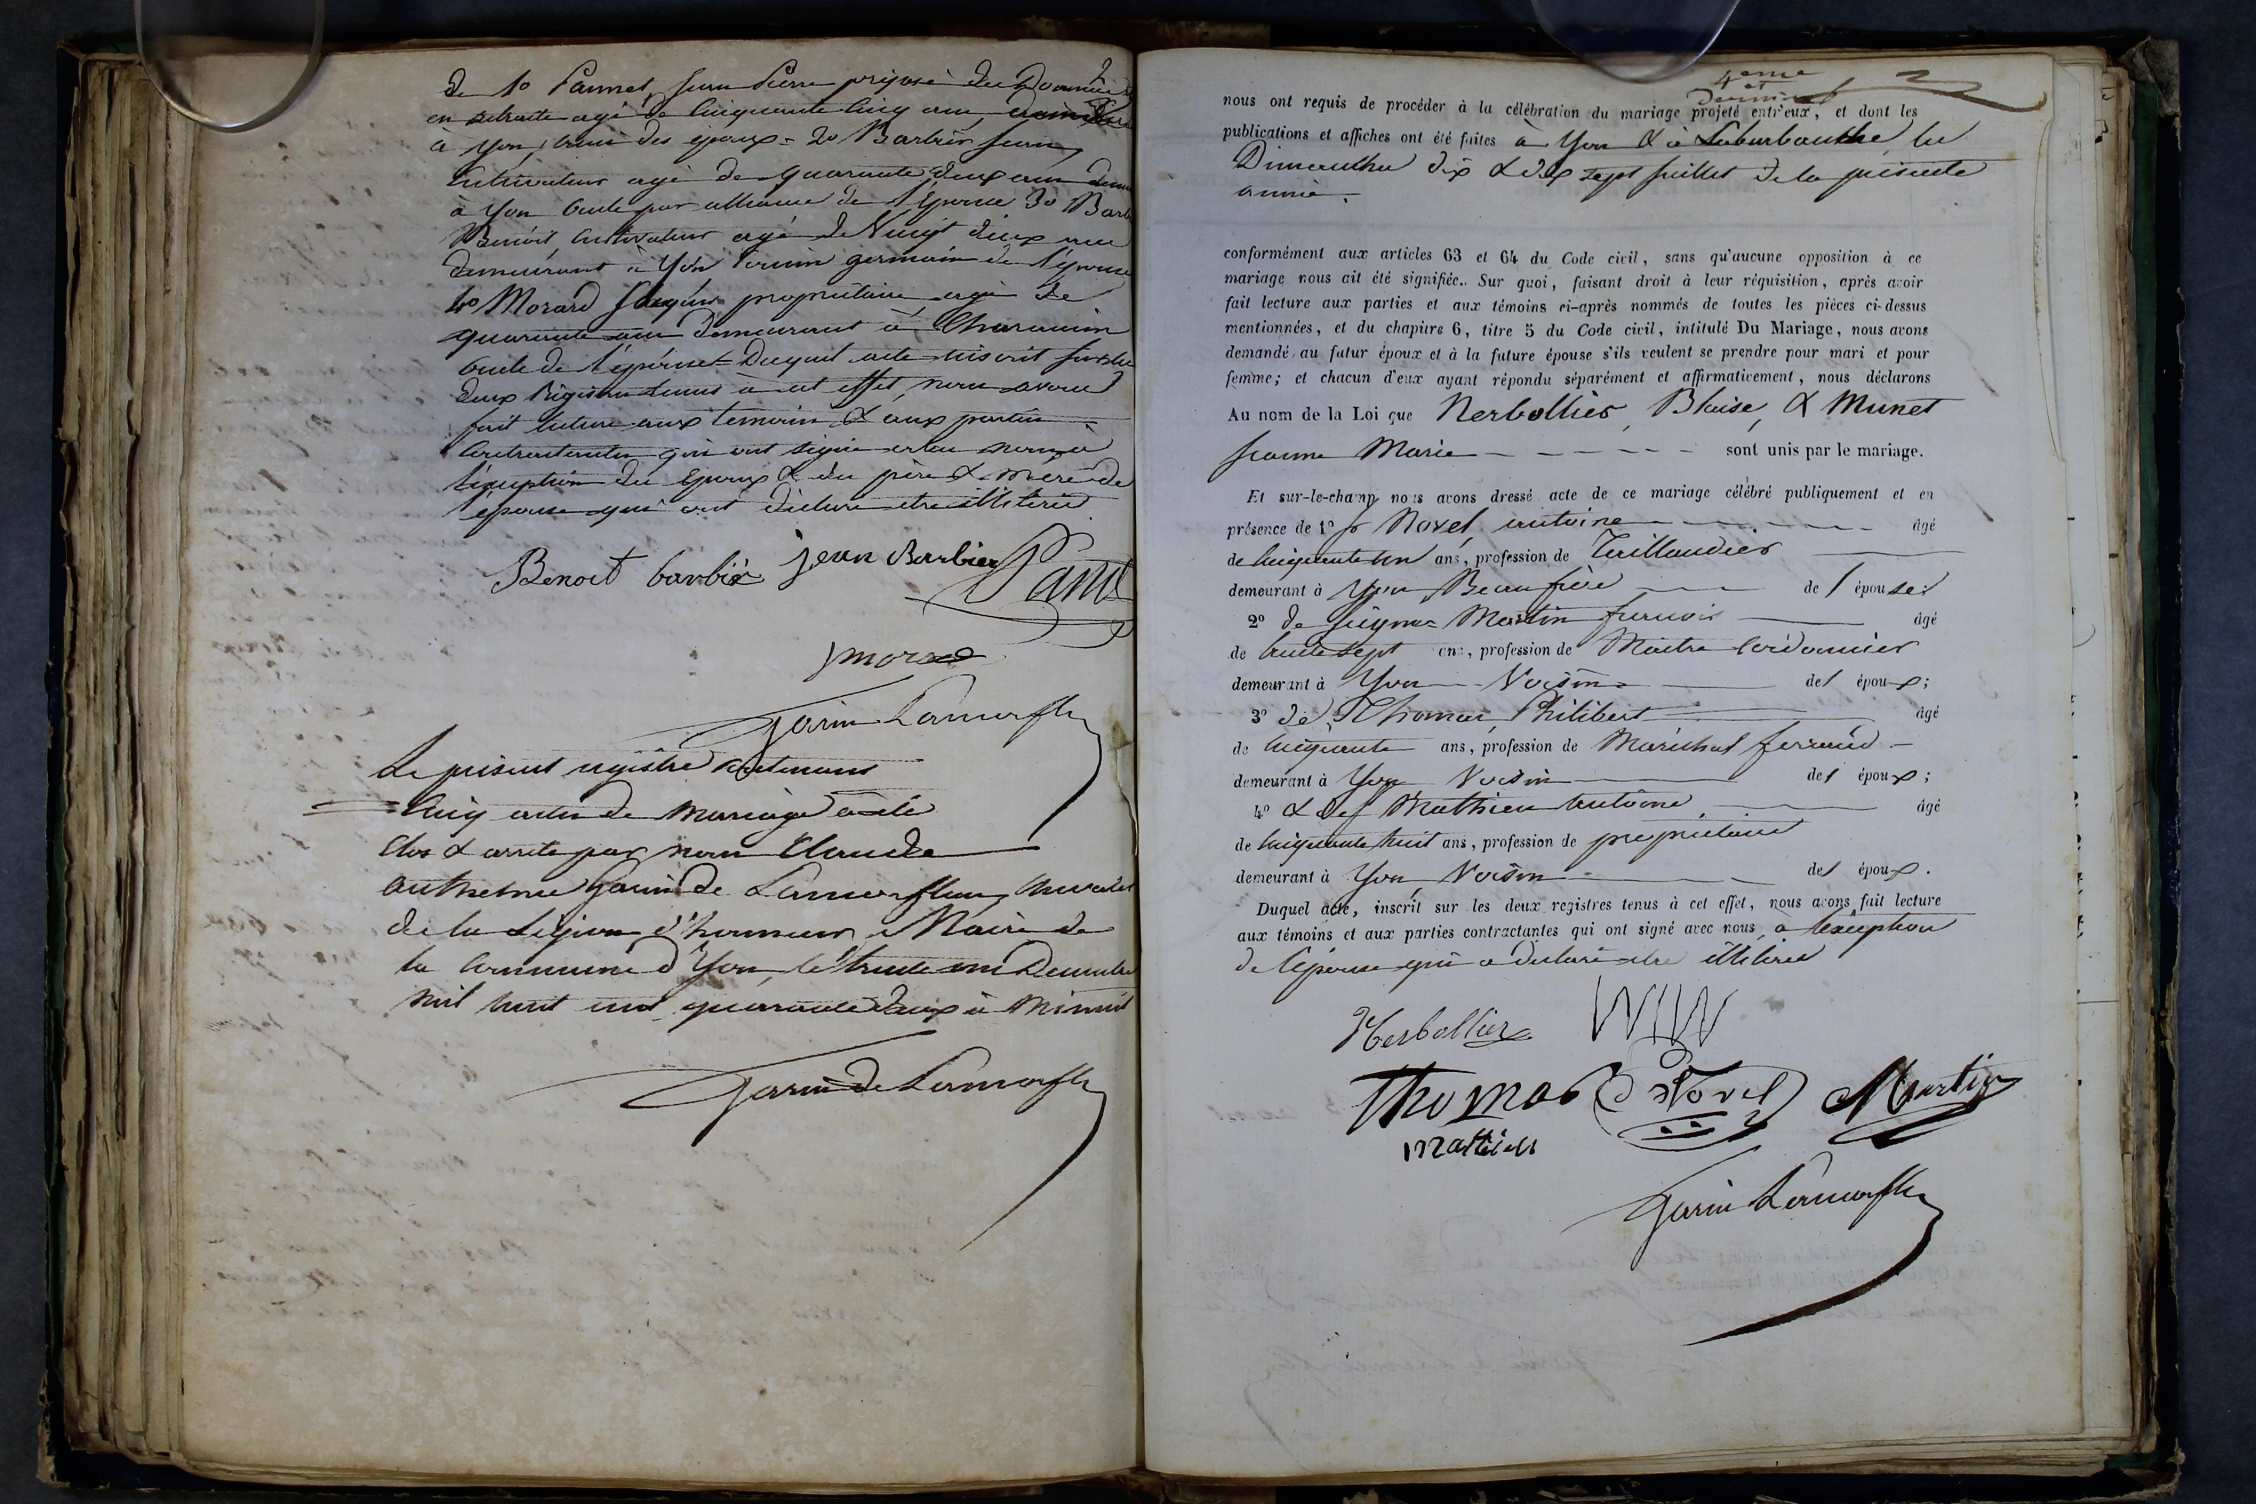 de 1o Pannet, Jean Pierre préposé des Douanes
en retraite agé de Cinquante Cinq ans
à yon, des époux = 2o Barbier Jean,
Cultivateur agé de quarante deux ans
à yon Oncle par alliance de l'Epouse 3o Barb
Benoit Cultivateur agé de Vingt deux ans
demeurant à Yon Cousin germain de l'épouse
4o Morard propriétaire agé de
quarante ans demeurant à
Oncle de l'épouse = Duquel acte inscrit sur les
deux Régistres tenus à cet effet, nous avons
fait lecture aux temoins & aux parties
Contractantes qui ont signé avec nous à
l'éxception des Epoux & des père & mère de
l'épouse qui ont déclaré etre illiterés
Benoit barbié jean Barbier Pannet
jmorard
Garin Lamorflan
Le présent régistre contenant
Cinq actes de mariage a été
Clos & arreté par nous Claude
Anthelme Garin de Lamorflan, Chevalier
de la Légion d'honneur Maire de
la Commune d'Yon le trente un Decembre
mil huit cent quarante deux à Minuit
Garin de Lamorflan
4eme
et
dernier
nous ont requis de procéder à la célébration du mariage projeté entr'eux, et dont les
publications et affiches ont été faites à Yon & à Laburbanche, les
Dimanches dix & dix sept juillet de la présente
année.
conformément aux articles 63 et 64 du Code civil, sans qu'aucune opposition à ce
mariage nous ait été signifiée. Sur quoi, faisant droit à leur réquisition, après avoir
fait lecture aux parties et aux témoins ci-après nommés de toutes les pièces ci-dessus
mentionnées, et du chapitre 6, titre 5 du Code civil, intitulé Du Mariage, nous avons
demandé au futur époux et à la future épouse s'ils veulent se prendre pour mari et pour
femme; et chacun d'eux ayant répondu séparément et affirmativement, nous déclarons
Au nom de la Loi que Nerbollier, Blaise, & Munet
Jeanne Marie - - - - - - sont unis par le mariage.
Et sur-le-champ nous avons dressé acte de ce mariage célébré publiquement et en
présence de 1o Novel antoine âgé
de Cinquante un ans, profession de Taillandier
demeurant à Yon Beaufrère de l'épouse;
2o de Martin francois âgé
de trente sept ans, profession de Maitre Cordonnier
demeurant à Yon Voisin de l'époux;
3o de Thomas, Philibert âgé
de Cinquante ans, profession de Maréchal ferrand
demeurant à Yon Voisin de l'époux;
4o & de Mathieu Antoine âgé
de Cinquante huit ans, profession de propriétaire
demeurant à Yon Voisin de l'époux.
Duquel acte, inscrit sur les deux registres tenus à cet effet, nous avons fait lecture
aux témoins et aux parties contractantes qui ont signé avec nous, à l'éxception
de l'épouse qui a déclaré etre illiterée
Nerbollier
thomas Novel Martin
mathieu
Garin Lamorflan